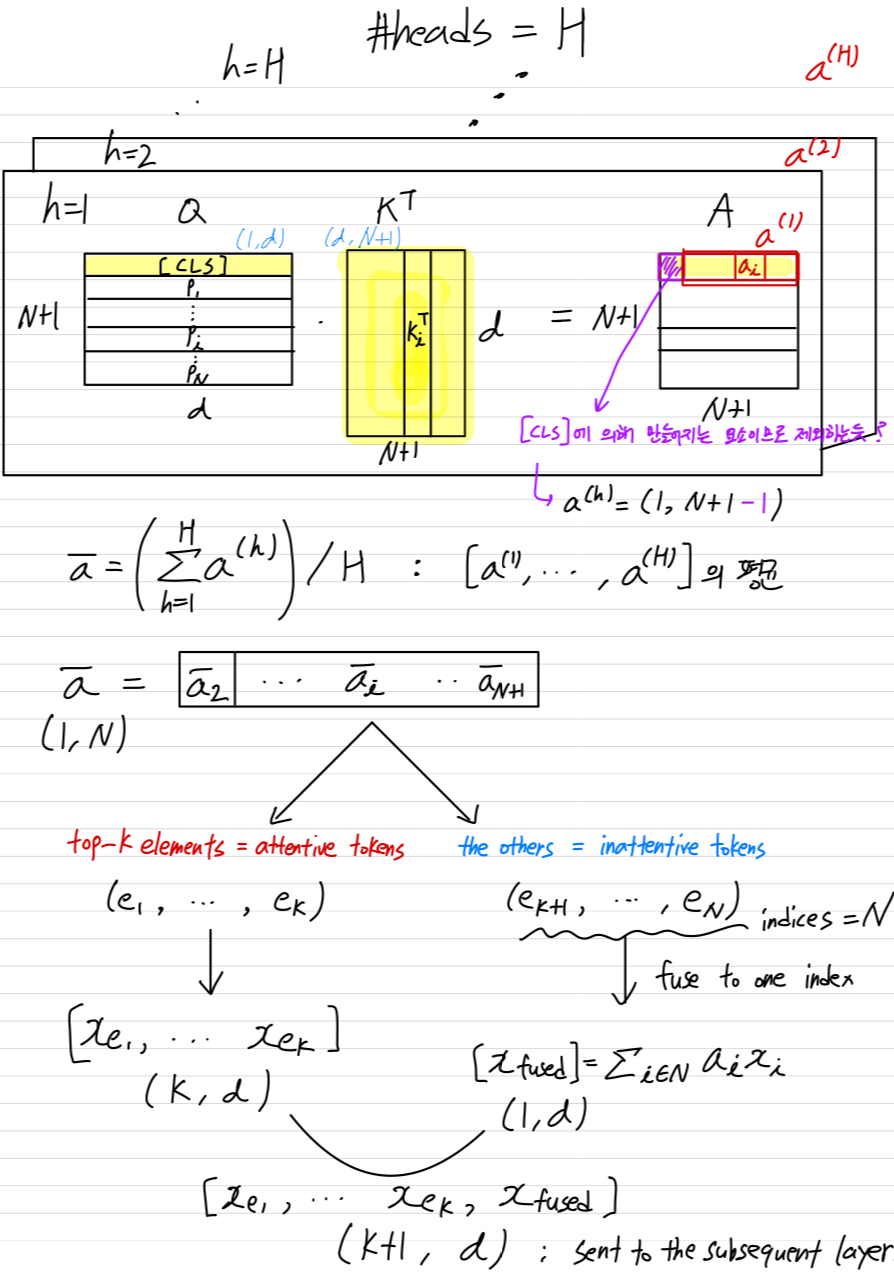 #heads = H
h=H
a^(H)
h=2
a^(2)
h=1 Q K^T A
(1,d) (d,N+1) a^(1)
[CLS] a_i
P_1
⋮
N+1 P_i · K_i^T d = N+1
⋮
P_N
d N+1 N+1
[CLS]에 의해 만들어지는 요소이므로 제외하는듯?
a^(h) = (1, N+1-1)
ā = (∑_{h=1}^{H} a^(h)) / H : [a^(1), ⋯, a^(H)]의 평균
ā = ā_2 ⋯ ā_i ‥ ā_{N+1}
(1,N)
top-k elements = attentive tokens the others = inattentive tokens
(e_1, ⋯, e_K) (e_{K+1}, ⋯, e_N) indices = N
fuse to one index
[x_{e_1}, ⋯ x_{e_K}] [x_fused] = ∑_{i∈N} a_i x_i
(K, d) (1,d)
[x_{e_1}, ⋯ x_{e_K}, x_fused]
(K+1, d) : sent to the subsequent layer